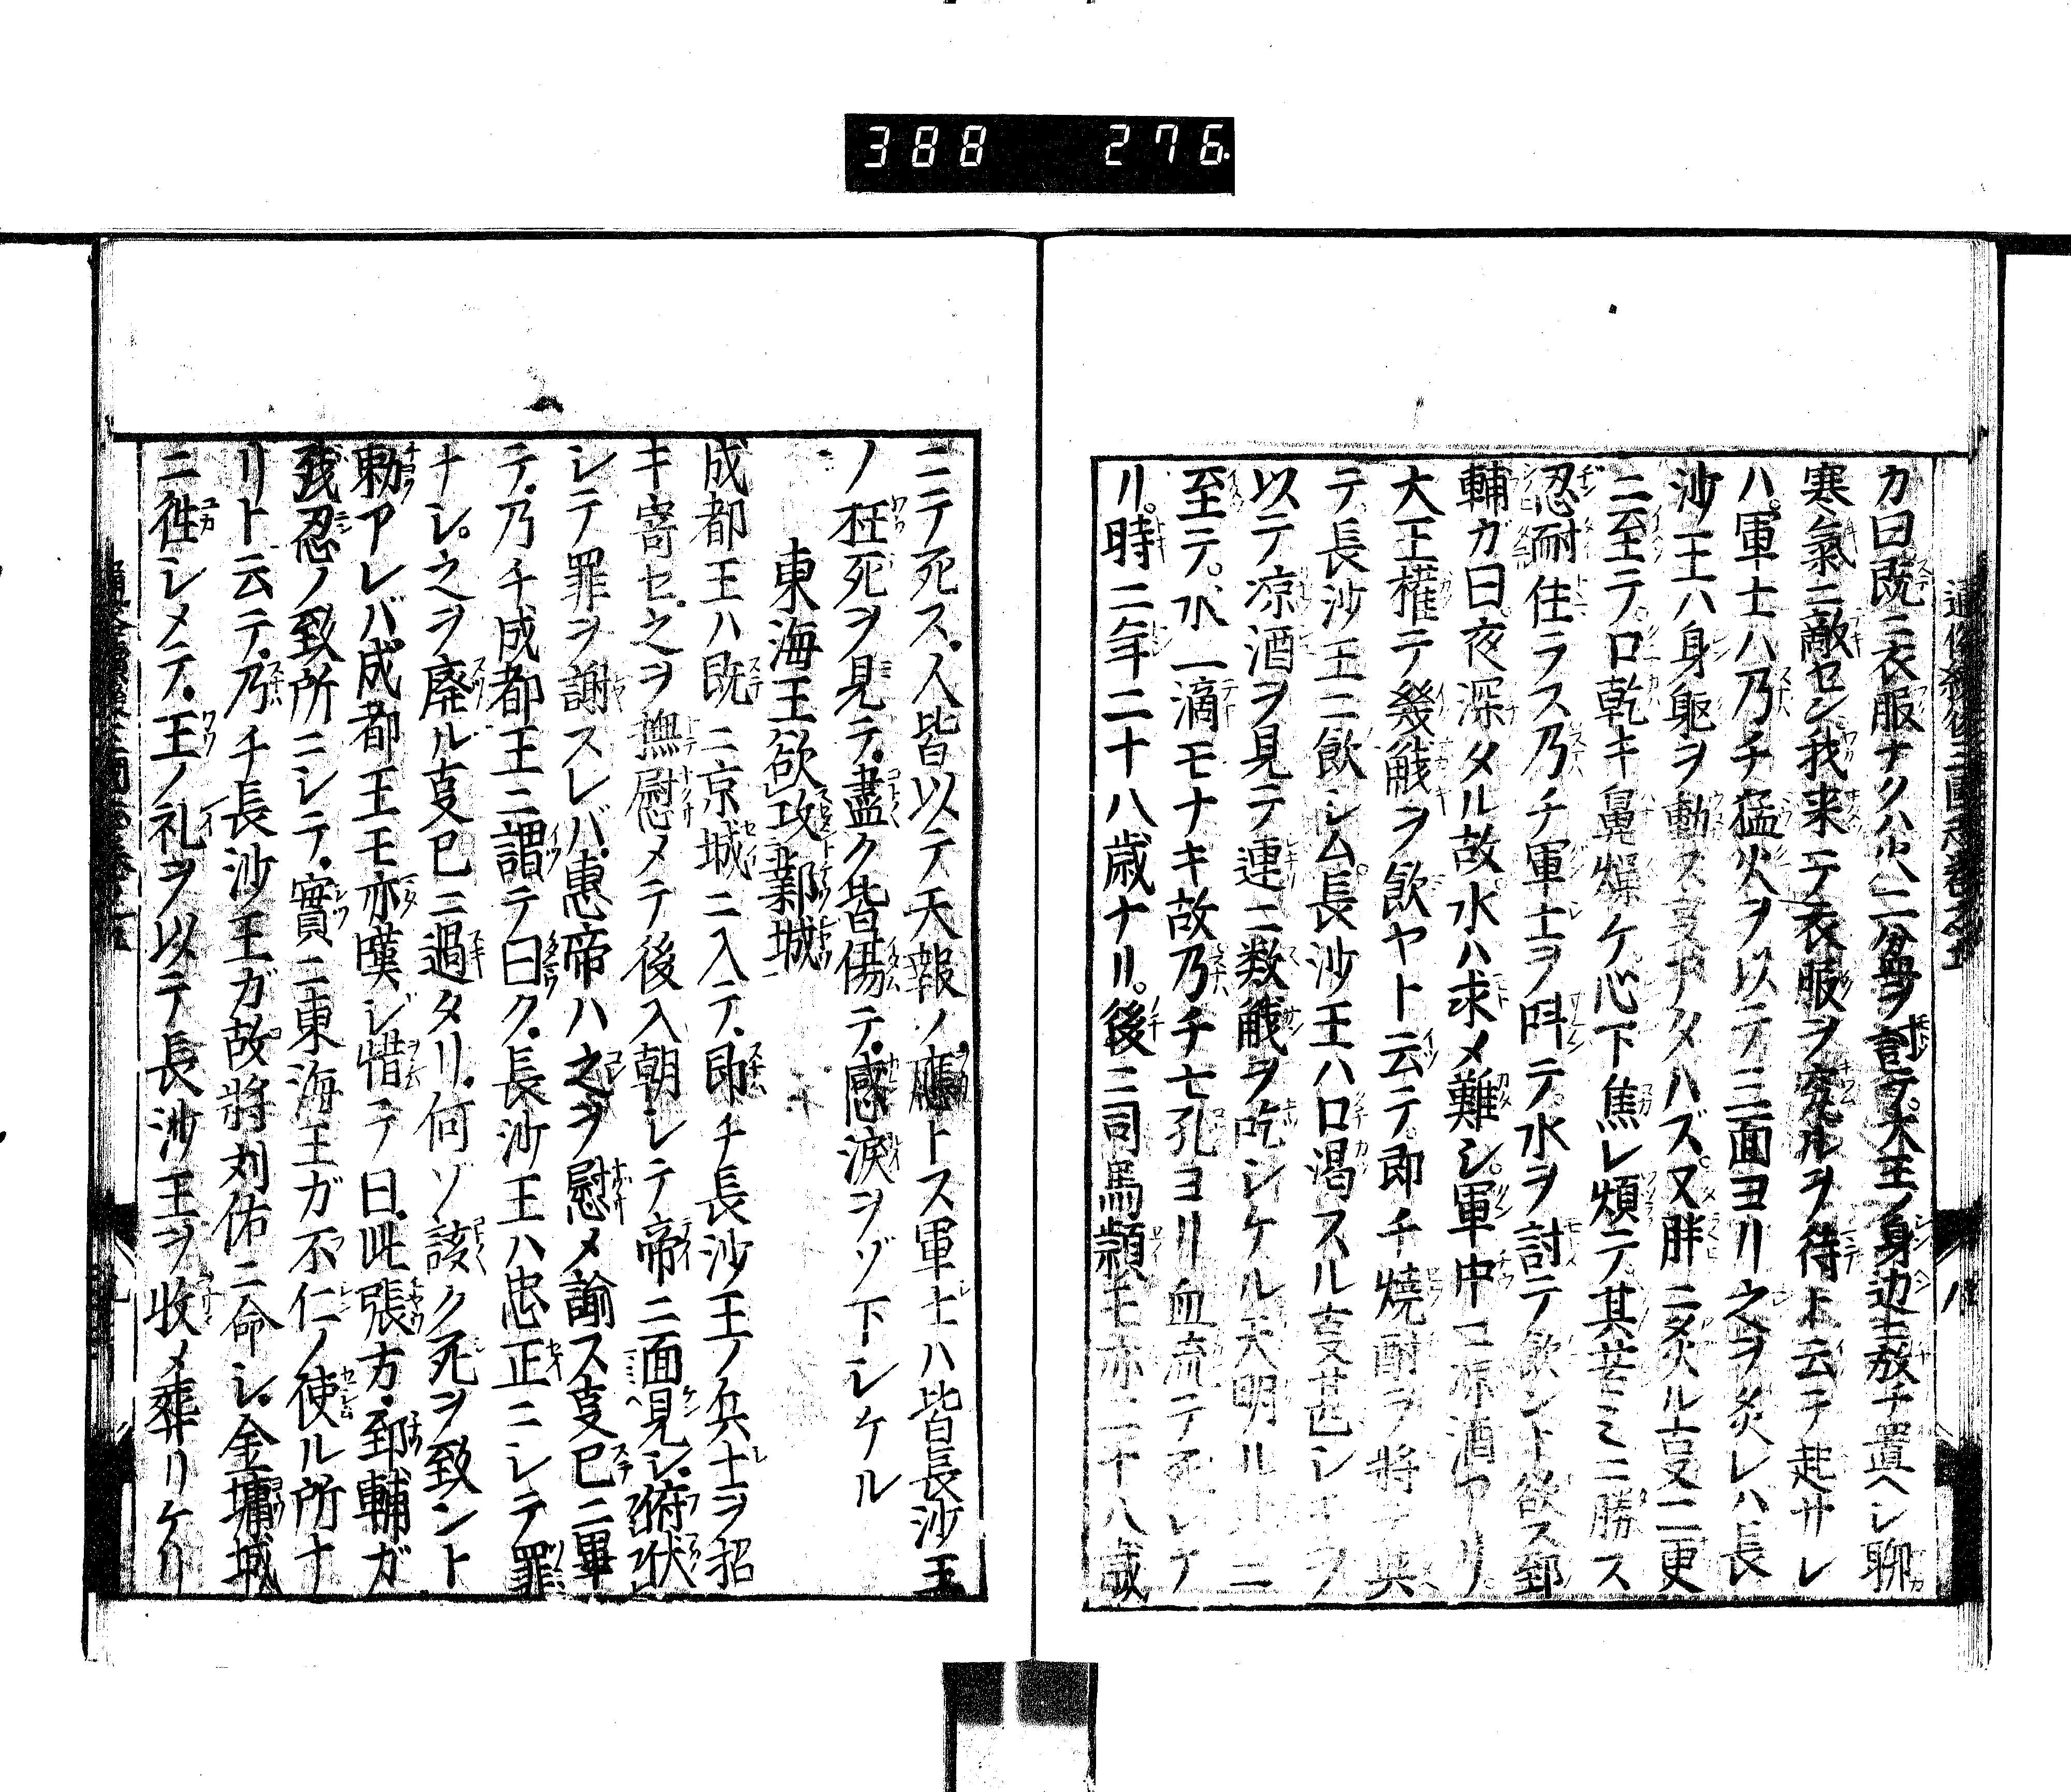 388 276
カ曰既ニ衣服ナクハ火二盆ヲ討テ大王ノ身辺ニ放チ置ヘシ聊
寒氣ニ敵セン我来テ衣服ヲ究ルヲ待ト云テ起サレ
ハ。軍士ハ乃チ猛火ヲ以テ三面ヨリ之ヲ炙レハ長
沙王ハ身躯ヲ動ス㕝アタハズ。又胖ニ炙ル㕝二更
ニ至テ。口乾キ鼻燥ケ心下焦レ煩テ。其苦ミニ勝ス
忍耐住ラス乃チ軍士ヲ呌テ。水ヲ討テ飲ント欲ス郅
輔ガ曰。夜深タル故。水ハ求メ難シ。軍中ニ凉酒アリ。
大王權テ幾觥ヲ飲ヤト云テ。即チ燒酎ヲ将テ與
テ。長沙王ニ飲シム。長沙王ハ口渇スル㕝甚シキヲ
以テ凉酒ヲ見テ連ニ数觥ヲ吃シケル天明ルニ
至テ。水一滴モナキ故乃チ七孔ヨリ血流テ死シテ
リ。時ニ年二十八歳ナリ。後ニ司馬頴モ亦二十八歳
ニテ死ス。人皆以テ天報ノ應トス軍士ハ皆長沙王
ノ枉死ヲ見テ。盡ク皆傷テ。感涙ヲゾ下シケル
東海王欲攻鄴城
成都王ハ既ニ京城ニ入テ。即チ長沙王ノ兵士ヲ招
キ寄セ。之ヲ撫慰メテ後入朝シテ帝ニ面見シ。俯伏
シテ罪ヲ謝スレバ。惠帝ハ之ヲ慰メ諭ス㕝已ニ畢
テ。乃チ成都王ニ謂テ曰ク。長沙王ハ忠正ニシテ罪
ナシ。之ヲ廃ル㕝已ニ過タリ。何ゾ該ク死ヲ致ント
勅アレバ成都王モ亦嘆ジ惜テ曰。此張方・郅輔ガ
残忍ノ致所ニシテ。實ニ東海王ガ不仁ノ使ル所ナ
リト云テ。乃チ長沙王ガ故將刘佑ニ命シ。金墉城
ニ徃シメテ。王ノ礼ヲ以テ長沙王ヲ收メ葬リケリ